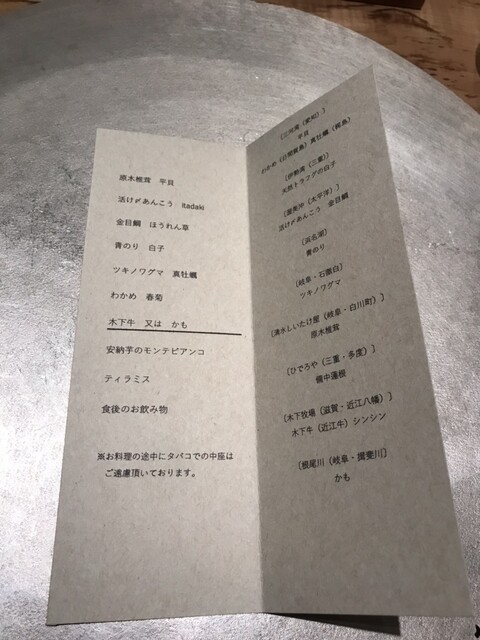 原木椎茸　平貝
活け〆あんこう　itadaki
金目鯛　ほうれん草
青のり　白子
ツキノワグマ　真牡蠣
わかめ　春菊
木下牛　又は　かも
安納芋のモンテビアンコ
ティラミス
食後のお飲み物
※お料理の途中にタバコでの中座は
ご遠慮頂いております。
〔三河湾（愛知）〕
平貝
わかめ（日間賀島）真牡蠣（桃島）
〔伊勢湾（三重）〕
天然トラフグの白子
〔渥美沖（太平洋）〕
活け〆あんこう　金目鯛
〔浜名湖〕
青のり
〔岐阜・石徹白〕
ツキノワグマ
〔清水しいたけ屋（岐阜・白川町）〕
原木椎茸
〔ひでろや（三重・多度）〕
備中蓮根
〔木下牧場（滋賀・近江八幡）〕
木下牛（近江牛）シンシン
〔根尾川（岐阜・揖斐川〕
かも